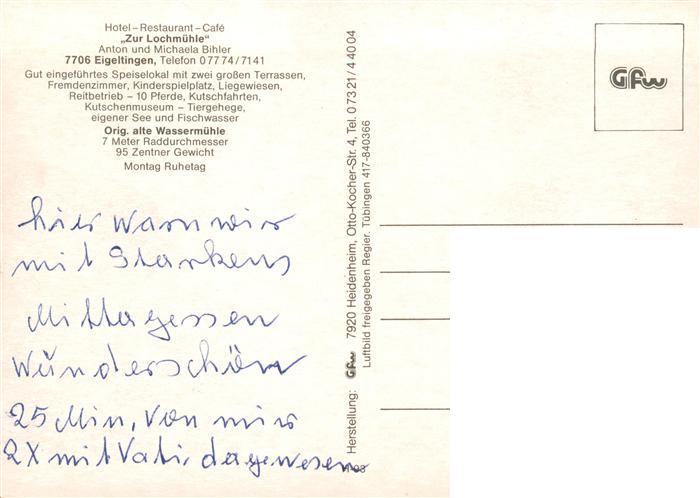 Hotel–Restaurant–Café
„Zur Lochmühle“
Anton und Michaela Bihler
7706 Eigeltingen, Telefon 07774/7141
Gut eingeführtes Speiselokal mit zwei großen Terrassen,
Fremdenzimmer, Kinderspielplatz, Liegewiesen,
Reitbetrieb – 10 Pferde, Kutschfahrten,
Kutschenmuseum – Tiergehege,
eigener See und Fischwasser
Orig. alte Wassermühle
7 Meter Raddurchmesser
95 Zentner Gewicht
Montag Ruhetag
hier warn wir
mit Starkens
Mittagessen
Wünderschön
25 Min, von mir
2X mit Vati, dagewesen
Herstellung: Gfw 7920 Heidenheim, Otto-Kocher-Str. 4, Tel. 07321/44004
Luftbild freigegeben Regier. Tübingen 417-840366
Gfw